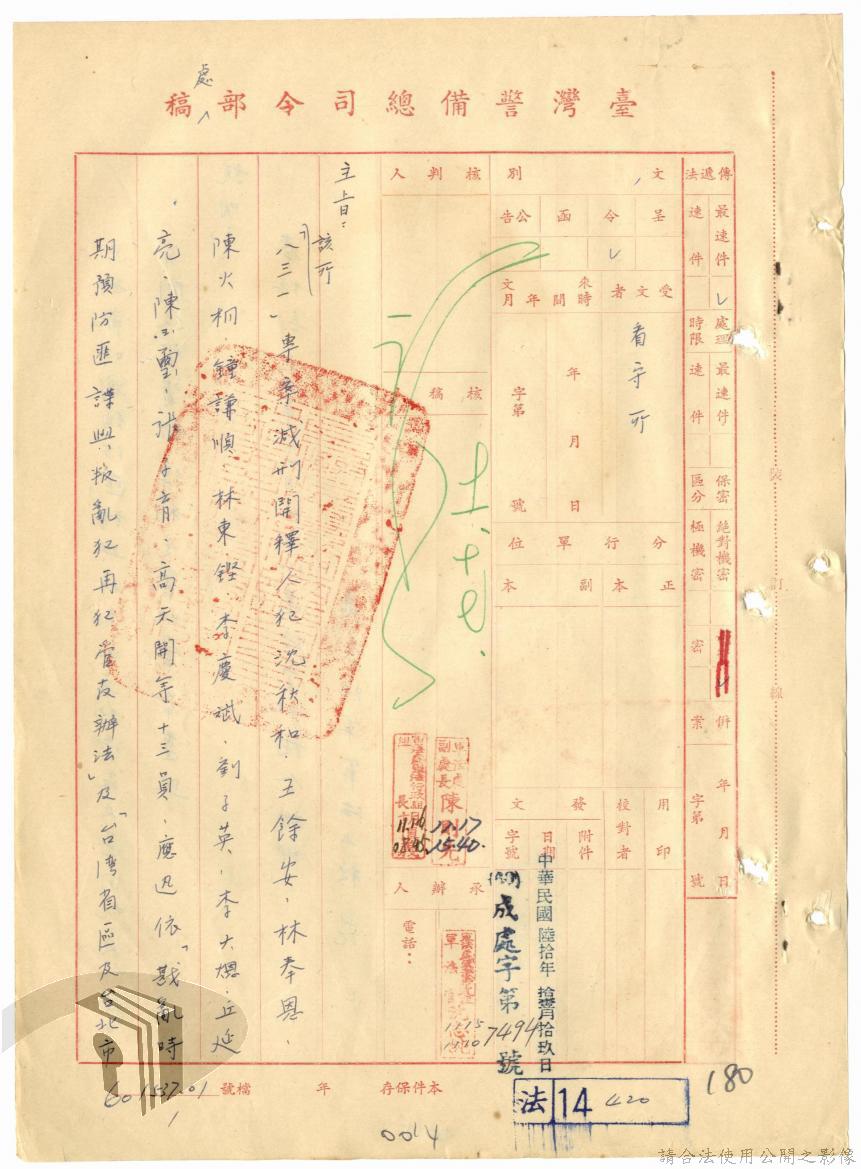 臺灣警備總司令部處稿
傳遞法
最速件
速件
處理時限
最速件
速件
保密區分
絕對機密
極機密
密
併案
年月日
字第
號
文別
呈
令
函
公告
受文者
看守所
來文時間
年月
年月日
字第
號
分行單位
正本
副本
用印
校對者
發文
附件
日期
字號
中華民國陸拾年拾壹月拾玖日
成處字第7494號
核判人
核稿
承辦人
電話：
11.17
15.40
11.15
主旨：
該所
「八三一」專案減刑開釋人犯沈秋和、王餘安、林奉恩、
陳火桐、鐘謙順、林東鏗、李慶斌、劉子英、李大熜、丘延
亮、陳玉璽、張子育、高天開等十三員，應迅依「戡亂時
期預防匪諜與叛亂犯再犯管教辦法」及「台灣省區及台北市
本件保存 年
檔號
60 1537.01
1
法 14 420
180
0014
裝 訂 線
請合法使用公開之影像